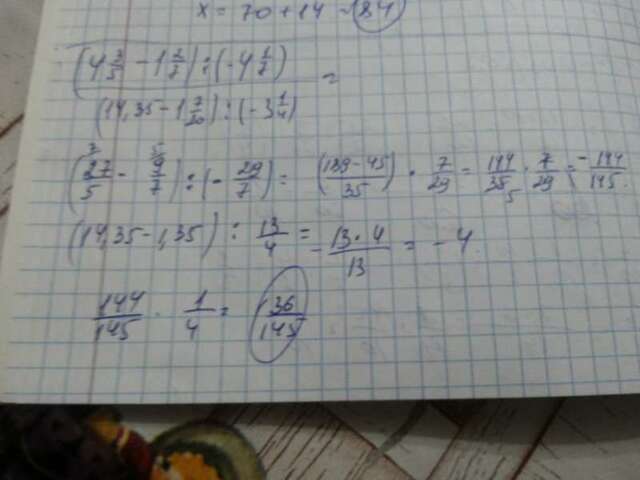 x = 70 + 14 = 84
(4 2/5 - 1 2/7) : (-4 1/7) =
(14,35 - 1 7/20) : (-3 1/4)
(27/5 - 9/7) : (- 29/7) = (189 - 45)/35 · 7/29 = 144/35 · 7/29 = - 144/145
(14,35 - 1,35) : 13/4 = - 13 · 4/13 = - 4.
144/145 · 1/4 = 36/145